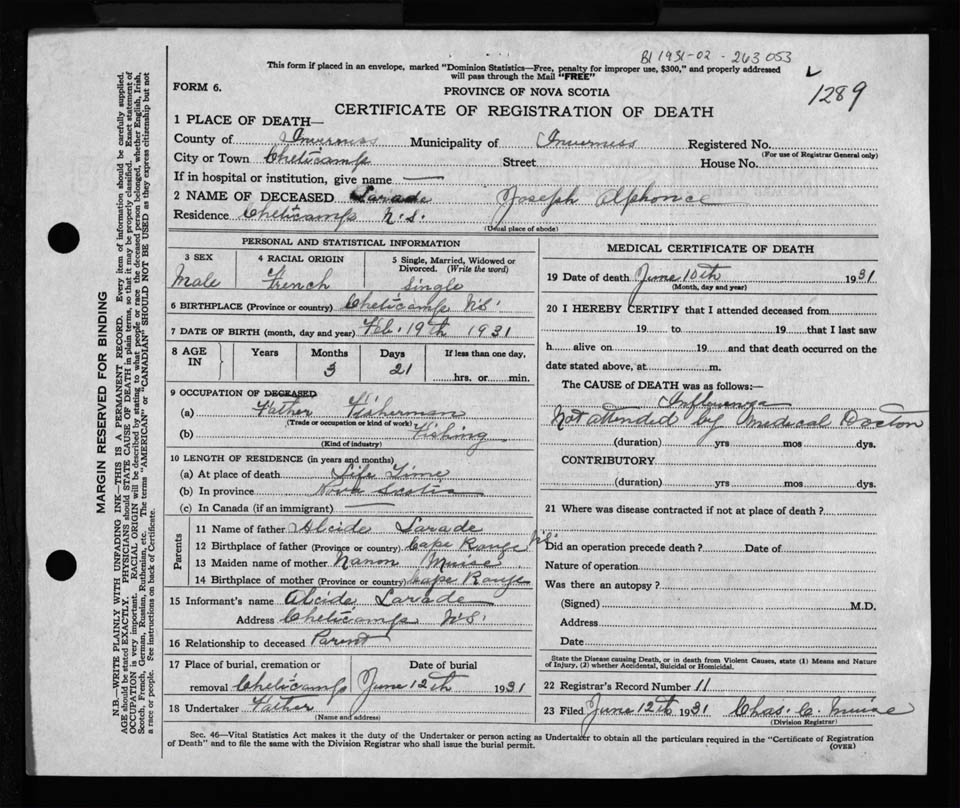 B1 1931-02-263053
This form if placed in an envelope, marked "Dominion Statistics—Free, penalty for improper use, $300," and properly addressed
will pass through the Mail "FREE"
1289
FORM 6.
PROVINCE OF NOVA SCOTIA
CERTIFICATE OF REGISTRATION OF DEATH
1 PLACE OF DEATH—
County of Inverness Municipality of Inverness Registered No.
(For use of Registrar General only)
City or Town Cheticamp Street House No.
If in hospital or institution, give name —
2 NAME OF DECEASED Larade Joseph Alphonce
Residence Cheticamp N.S.
(Usual place of abode)
PERSONAL AND STATISTICAL INFORMATION
3 SEX 4 RACIAL ORIGIN 5 Single, Married, Widowed or
Divorced. (Write the word)
Male French Single
6 BIRTHPLACE (Province or country) Cheticamp N.S.
7 DATE OF BIRTH (month, day and year) Feb. 19th 1931
8 AGE IN Years Months Days If less than one day,
3 21 hrs. or min.
9 OCCUPATION OF DECEASED
(a) Father Fisherman
(Trade or occupation or kind of work)
(b) Fishing
(Kind of industry)
10 LENGTH OF RESIDENCE (in years and months)
(a) At place of death Life Time
(b) In province Nova Scotia
(c) In Canada (if an immigrant) —
Parents
11 Name of father Alcide Larade
12 Birthplace of father (Province or country) Cape Rouge N.S.
13 Maiden name of mother Nanon Muise
14 Birthplace of mother (Province or country) Cape Rouge
15 Informant's name Alcide Larade
Address Cheticamp N.S.
16 Relationship to deceased Parent
17 Place of burial, cremation or Date of burial
removal Cheticamp June 12th 1931
18 Undertaker Father
(Name and address)
MEDICAL CERTIFICATE OF DEATH
19 Date of death June 10th 1931
(Month, day and year)
20 I HEREBY CERTIFY that I attended deceased from
19 to 19 that I last saw
h alive on 19 and that death occurred on the
date stated above, at m.
The CAUSE of DEATH was as follows:—
Influenza
Not attended by Medical Doctor
(duration) yrs mos dys.
CONTRIBUTORY
(duration) yrs. mos. dys.
21 Where was disease contracted if not at place of death?
Did an operation precede death? Date of
Nature of operation
Was there an autopsy?
(Signed) M.D.
Address
Date
State the Disease causing Death, or in death from Violent Causes, state (1) Means and Nature
of Injury, (2) whether Accidental, Suicidal or Homicidal.
22 Registrar's Record Number 11
23 Filed June 12th 1931 Chas. C. Muise
(Division Registrar)
Sec. 46—Vital Statistics Act makes it the duty of the Undertaker or person acting as Undertaker to obtain all the particulars required in the "Certificate of Registration
of Death" and to file the same with the Division Registrar who shall issue the burial permit.
(OVER)
MARGIN RESERVED FOR BINDING
N.B.—WRITE PLAINLY WITH UNFADING INK—THIS IS A PERMANENT RECORD. Every item of information should be carefully supplied.
AGE should be stated EXACTLY. PHYSICIANS should STATE CAUSE OF DEATH in plain terms, so that it may be properly classified. Exact statement of
OCCUPATION is very important. RACIAL ORIGIN will be described by stating to what people or race the deceased person belonged, whether English, Irish,
Scotch, French, German, Russian, Ruthenian, etc. The terms "AMERICAN" or "CANADIAN" SHOULD NOT BE USED as they express citizenship but not
a race or people. See instructions on back of Certificate.